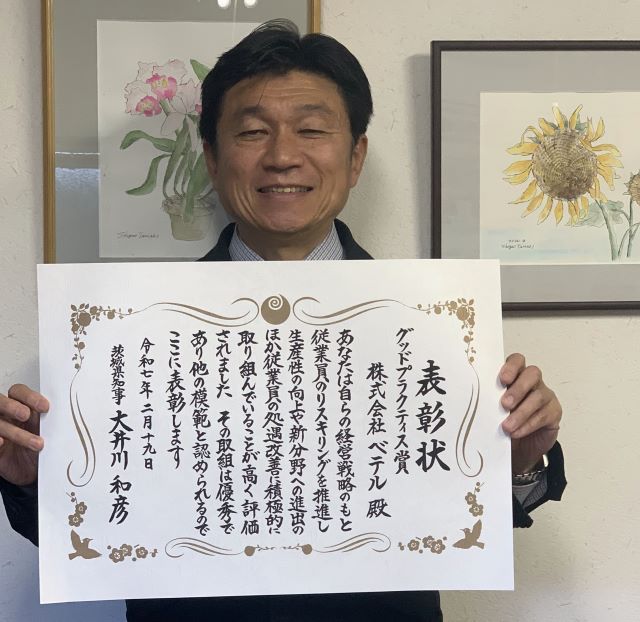 表彰状
グッドプラクティス賞
株式会社 ベテル 殿
あなたは自らの経営戦略のもと
従業員のリスキリングを推進し
生産性の向上や新分野への進出の
ほか従業員の処遇改善に積極的に
取り組んでいることが高く評価
されました その取組は優秀で
あり他の模範と認められるので
ここに表彰します
令和七年二月十九日
茨城県知事 大井川 和彦